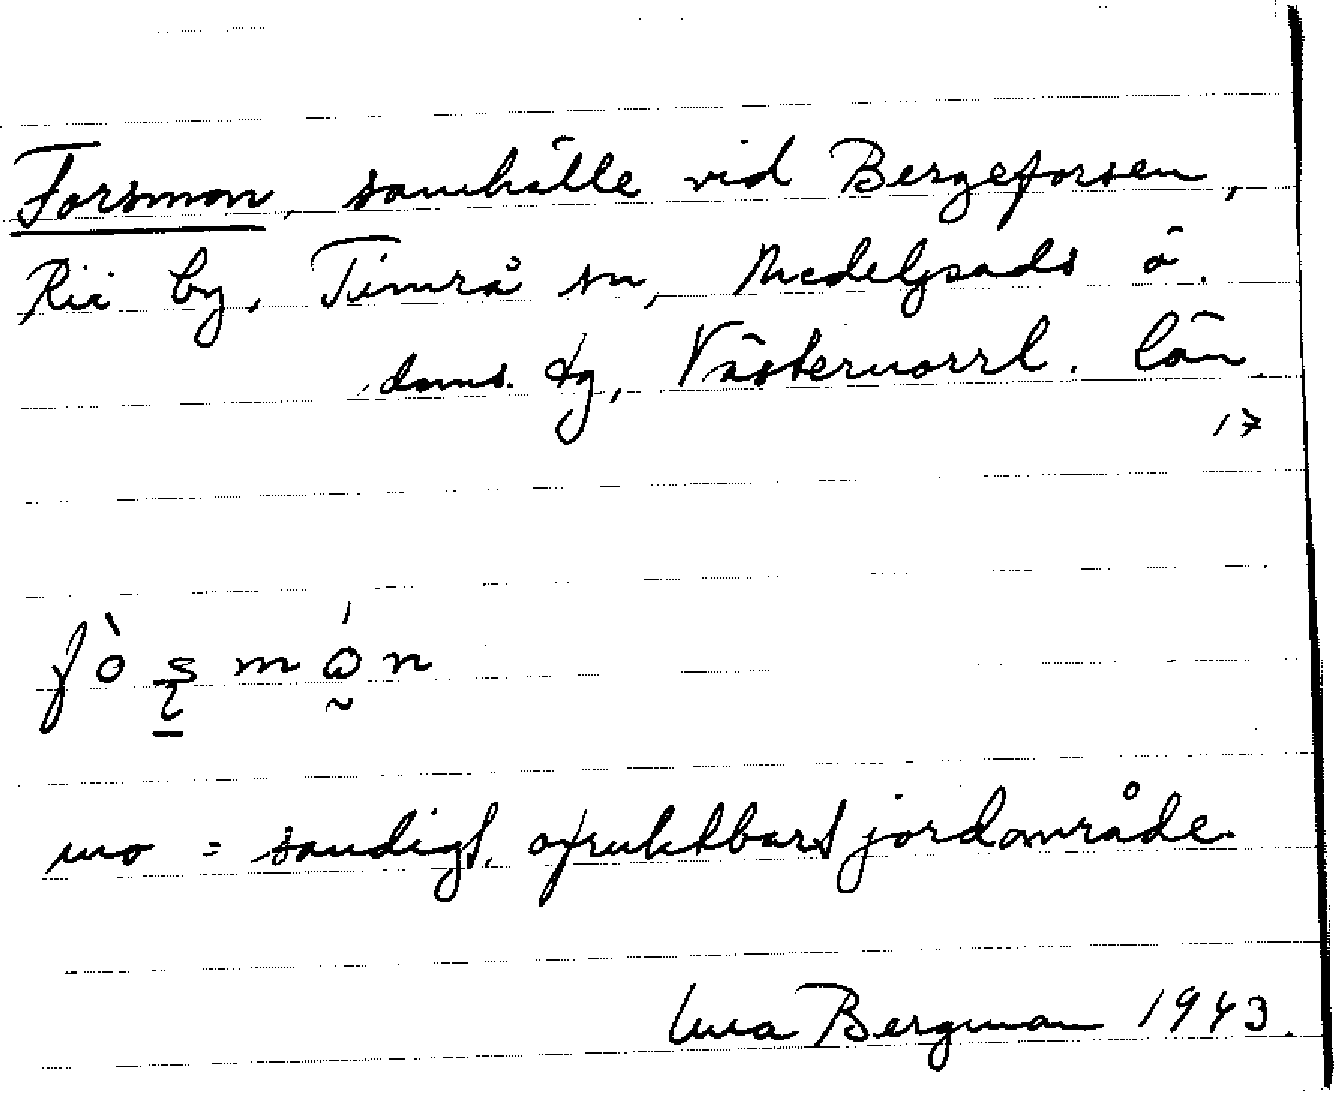 Forsmon, samhälle vid Bergeforsen,
Rië by, Timrå sn, Medelpads ö.
doms. tg, Västernorrl. län
17
mo = sandigt, ofruktbart jordområde
Bergman 1943.